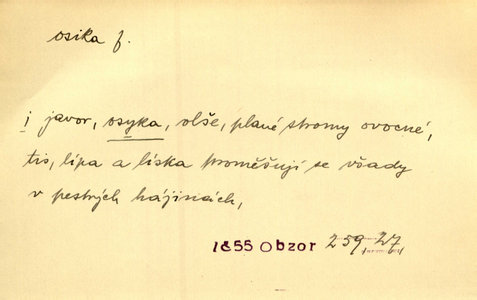 osika f.
i javor, osyka, olše, plané stromy ovocné,
tis, lípa a líska proměšují se všady
v pestrých hájinách,
1855 Obzor 259,27